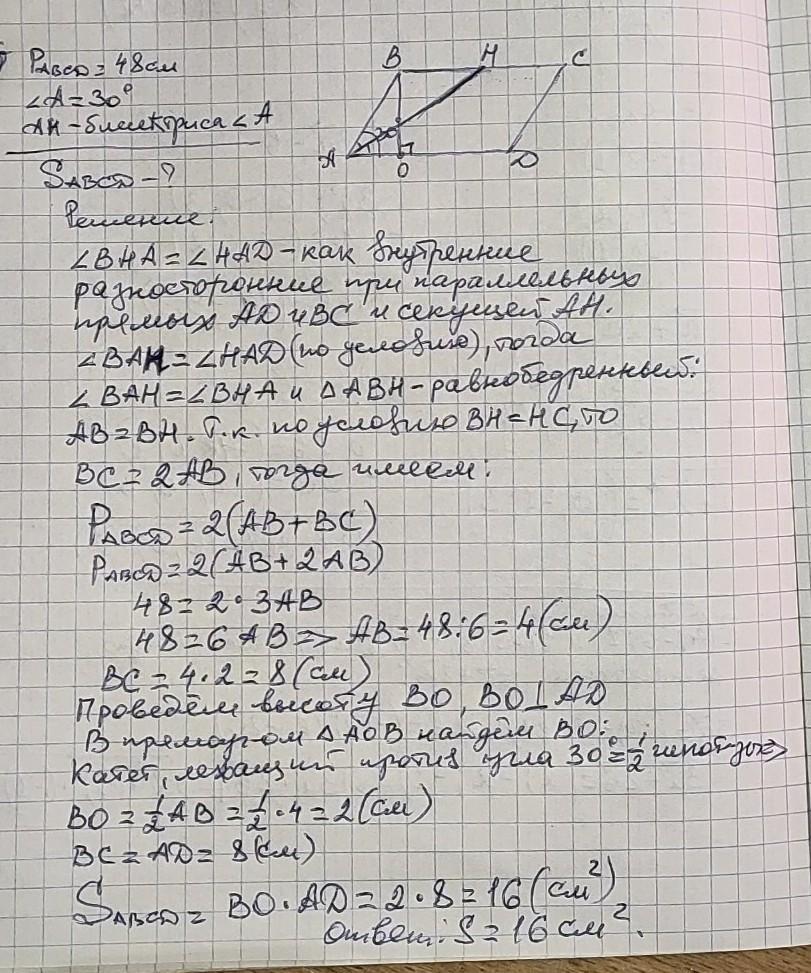 P_ABCD = 48 см
∠A = 30°
AH - биссектриса ∠A
S_ABCD - ?
B H C
30°
A O D
Решение:
∠BHA = ∠HAD - как внутренние
разносторонние при параллельных
прямых AD и BC и секущей AH.
∠BAH = ∠HAD (по условию), тогда
∠BAH = ∠BHA и △ABH - равнобедренный:
AB = BH. Т.к. по условию BH = HC, то
BC = 2AB, тогда имеем:
P_ABCD = 2(AB + BC)
P_ABCD = 2(AB + 2AB)
48 = 2 · 3AB
48 = 6 AB => AB = 48 : 6 = 4 (см)
BC = 4 · 2 = 8 (см)
Проведём высоту BO, BO ⊥ AD
В прямоуг-ом △AOB найдём BO:
Катет, лежащий против угла 30° = 1/2 гипот-зы =>
BO = 1/2 AB = 1/2 · 4 = 2 (см)
BC = AD = 8 (см)
S_ABCD = BO · AD = 2 · 8 = 16 (см²)
Ответ: S = 16 см².